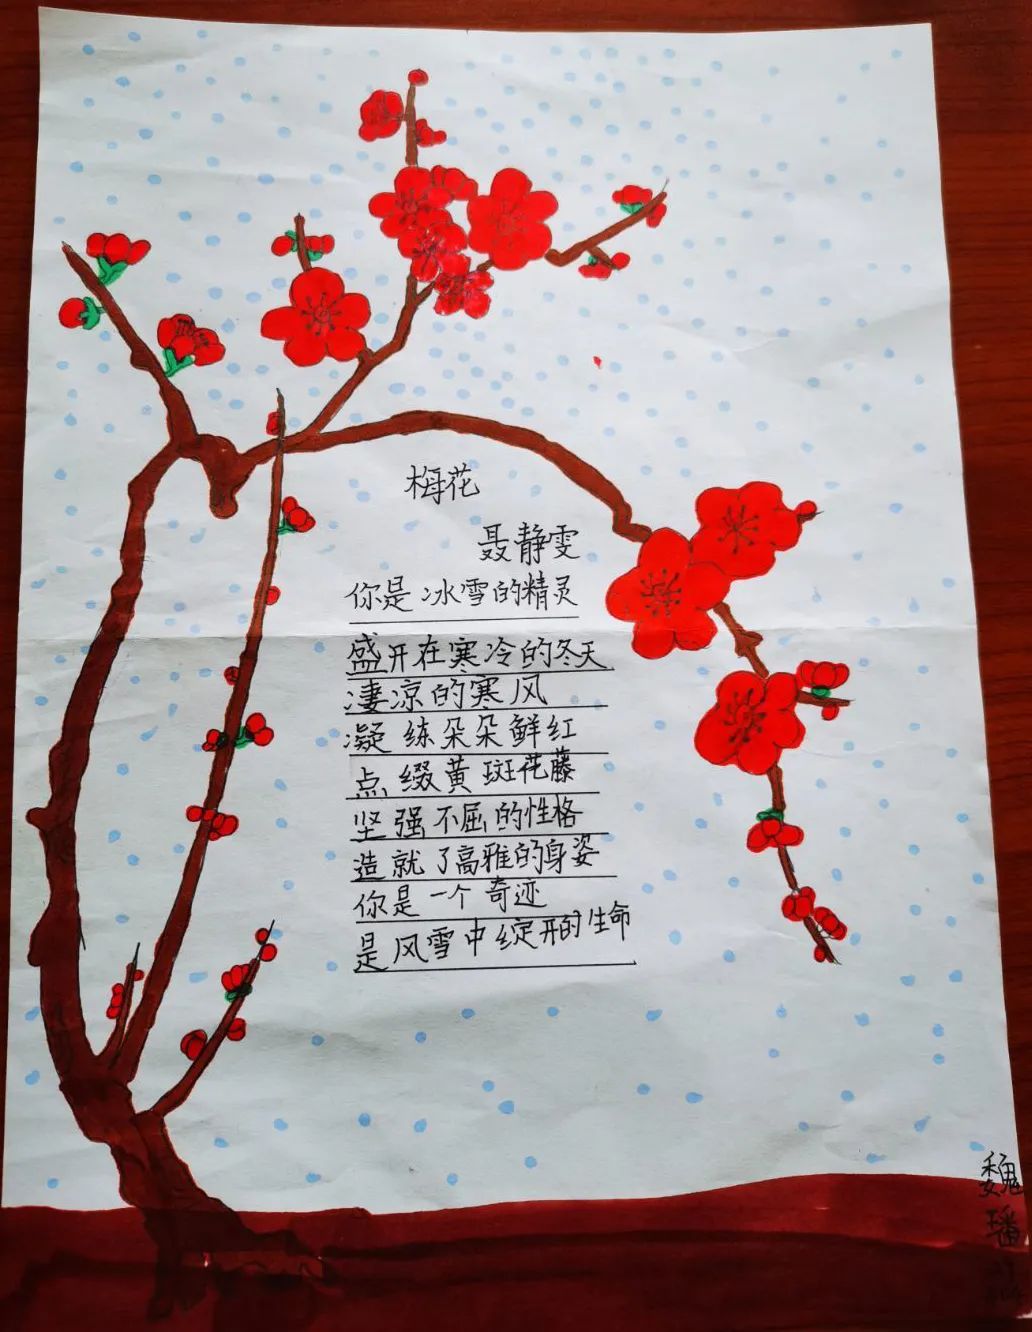 梅花
聂静雯
你是冰雪的精灵
盛开在寒冷的冬天
凄凉的寒风
凝练朵朵鲜红
点缀黄斑花藤
坚强不屈的性格
造就了高雅的身姿
你是一个奇迹
是风雪中绽开的生命
魏
璠